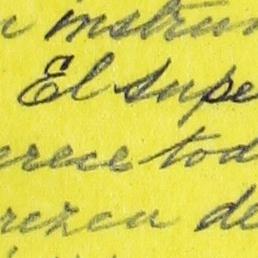 instru
El supe
erece tod
rezca de